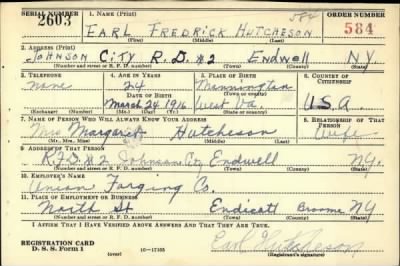 SERIAL NUMBER 1. Name (Print) 584 ORDER NUMBER
2603 EARL FREDRICK HUTCHESON 584
(First) (Middle) (Last)
2. Address (Print)
JOHNSON CITY R.D. #2 Endwell N.Y.
(Number and street or R. F. D. number) (Town) (County) (State)
3. Telephone 4. Age in Years 5. Place of Birth 6. Country of Citizenship
none 24 Mannington
Date of Birth (Town or county)
March 24 1916 West Va. U.S.A.
(Exchange) (Number) (Mo.) (Day) (Yr.) (State or country)
7. Name of Person Who Will Always Know Your Address 8. Relationship of That Person
Mrs Margaret Hutcheson Wife
(Mr., Mrs., Miss) (First) (Middle) (Last)
9. Address of That Person
R.F.D. #2 Johnson City Endwell N.Y.
(Number and street or R. F. D. number) (Town) (County) (State)
10. Employer's Name
Union Forging Co.
11. Place of Employment or Business
North St Endicott Broome NY
(Number and street or R. F. D. number) (Town) (County) (State)
I Affirm That I Have Verified Above Answers and That They Are True.
REGISTRATION CARD
D. S. S. Form 1 (over) 16—17105 Earl Hutcheson
(Registrant's signature)